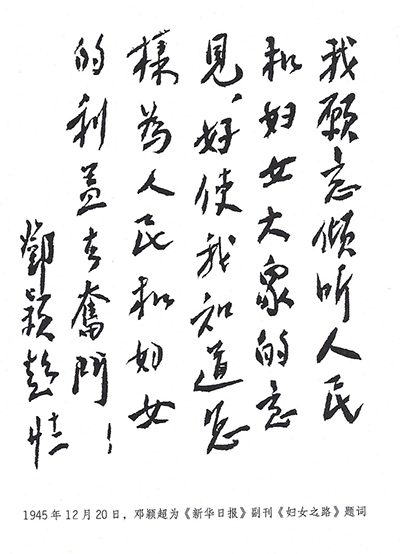 我願意傾听人民
和妇女大眾的意
見，好使我知道怎
樣為人民和妇女
的利益去奮鬥！
鄧穎超
1945年12月20日，邓颖超为《新华日报》副刊《妇女之路》题词